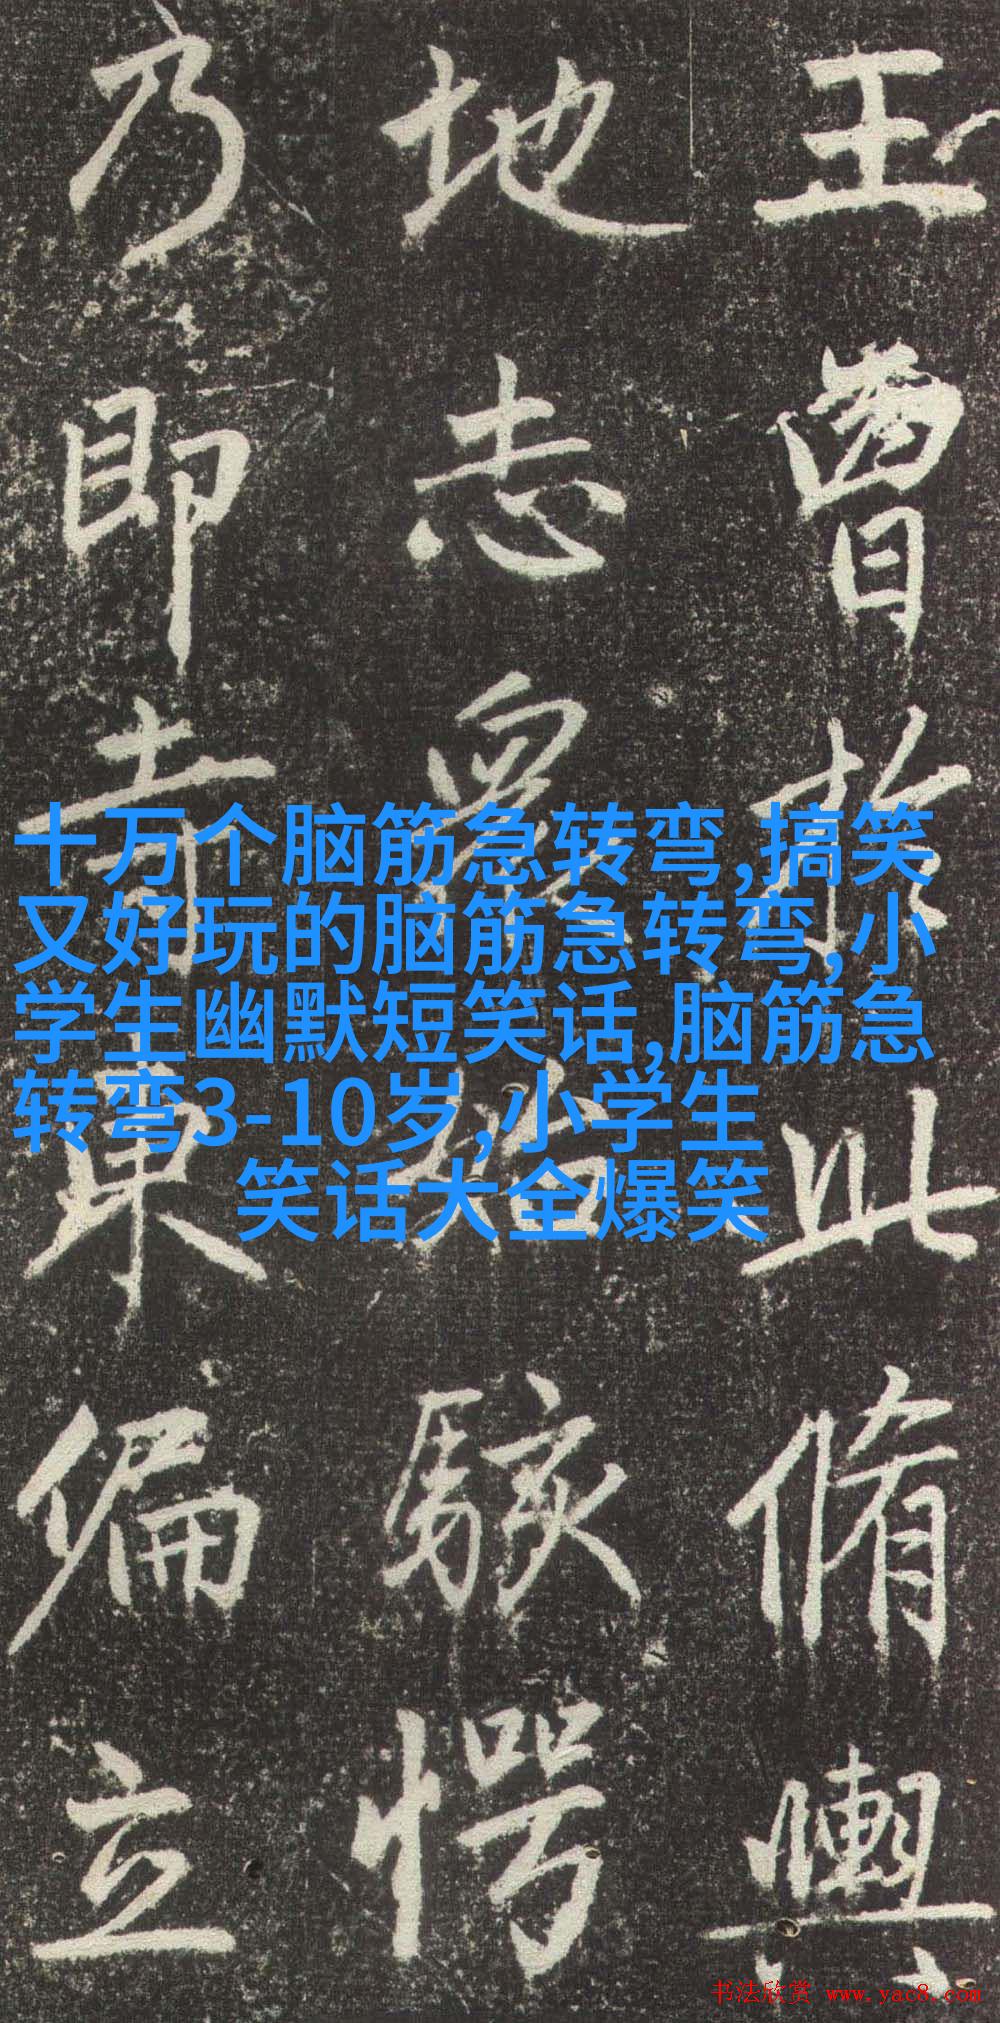 王曾於此脩輿
地志衆始駭愕
乃即寺東偏立
十万个脑筋急转弯,搞笑
又好玩的脑筋急转弯,小
学生幽默短笑话,脑筋急
转弯3-10岁,小学生
笑话大全爆笑
书法欣赏 www.yac8.com